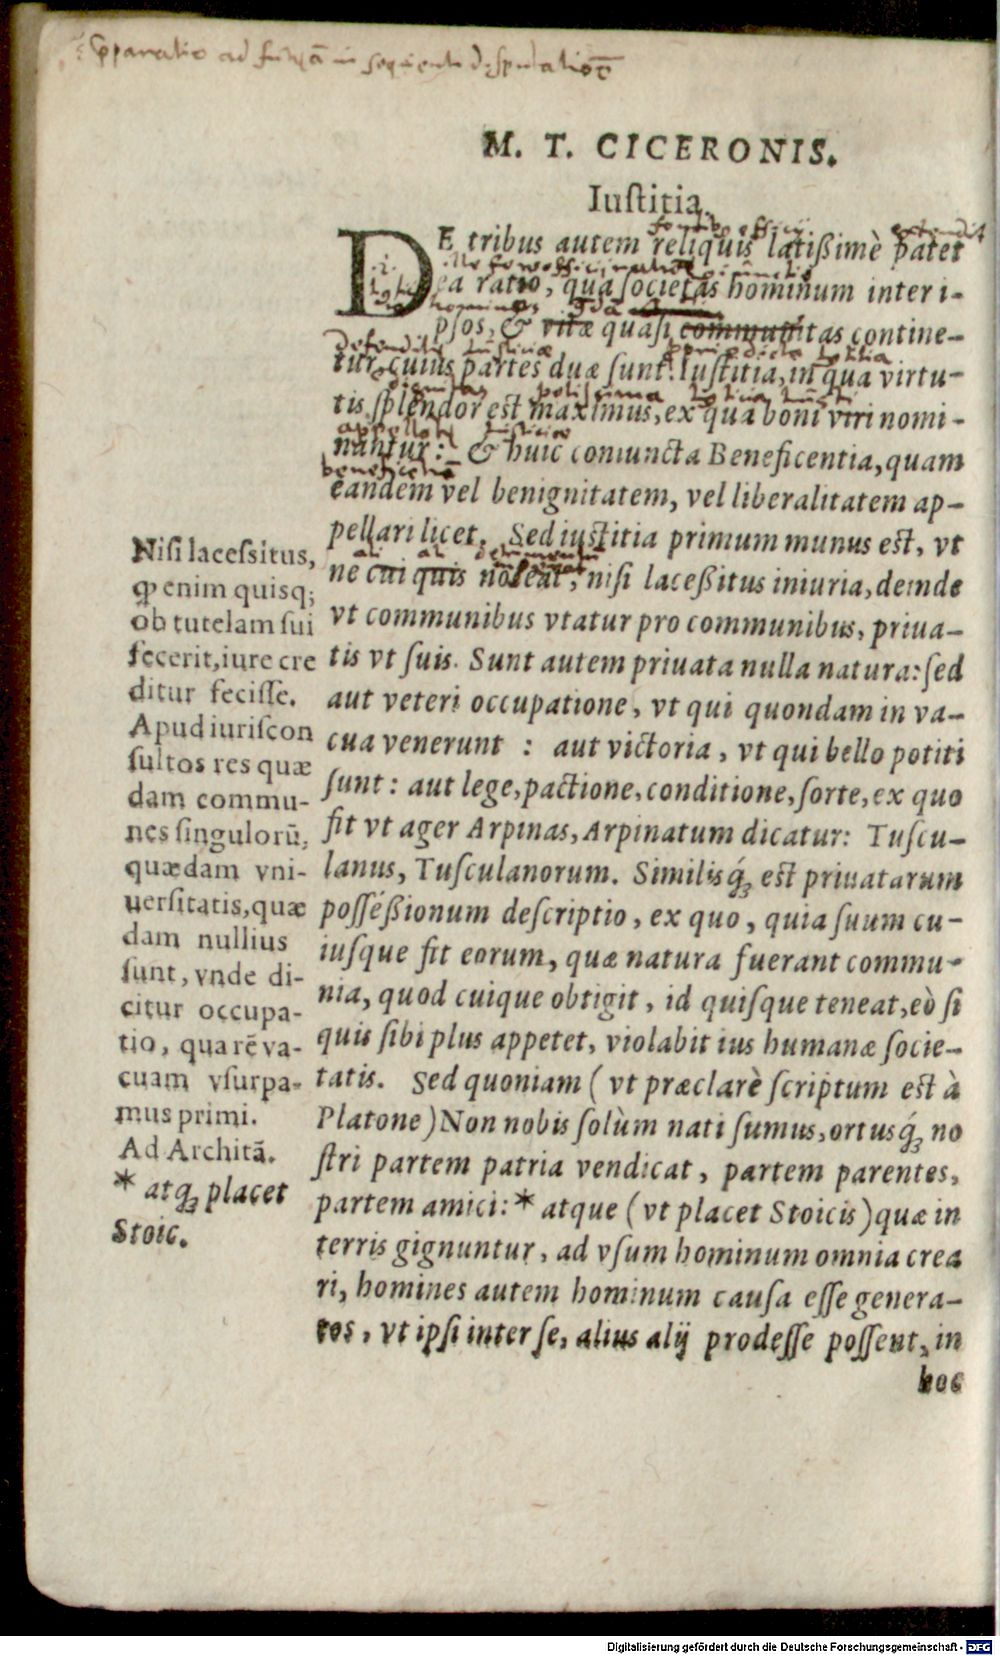 M. T. CICERONIS.
Iuſtitia.
DE tribus autem reliquis latißimè patet
ea ratio, qua ſocietas hominum inter i-
pſos, & vitæ quaſi communitas contine-
tur, cuius partes duæ ſunt: Iuſtitia, in qua virtu-
tis ſplendor eſt maximus, ex qua boni viri nomi-
nantur: & huic coniuncta Beneficentia, quam
eandem vel benignitatem, vel liberalitatem ap-
pellari licet. Sed iuſtitia primum munus eſt, vt
ne cui quis noceat, niſi laceßitus iniuria, deinde
vt communibus vtatur pro communibus, priua-
tis vt ſuis. Sunt autem priuata nulla natura: ſed
aut veteri occupatione, vt qui quondam in va-
cua venerunt : aut victoria, vt qui bello potiti
ſunt: aut lege, pactione, conditione, ſorte, ex quo
fit vt ager Arpinas, Arpinatum dicatur: Tuſcu-
lanus, Tuſculanorum. Similisq́ꝫ eſt priuatarum
poſſeßionum deſcriptio, ex quo, quia ſuum cu-
iuſque fit eorum, quæ natura fuerant commu-
nia, quod cuique obtigit, id quiſque teneat, eò ſi
quis ſibi plus appetet, violabit ius humanæ ſocie-
tatis. Sed quoniam (vt præclarè ſcriptum eſt à
Platone) Non nobis ſolùm nati ſumus, ortusq́ꝫ no
ſtri partem patria vendicat, partem parentes,
partem amici: * atque (vt placet Stoicis) quæ in
terris gignuntur, ad vſum hominum omnia crea
ri, homines autem hominum cauſa eſſe genera-
tos, vt ipſi inter ſe, alius alij prodeſſe poſſent, in
hoc
Niſi laceſsitus,
ꝙ enim quisqꝫ
ob tutelam ſui
fecerit, iure cre
ditur feciſſe.
Apud iuriſcon
ſultos res quæ
dam commu-
nes ſingulorū,
quædam vni-
uerſitatis, quæ
dam nullius
ſunt, vnde di-
citur occupa-
tio, qua rē va-
cuam vſurpa-
mus primi.
Ad Architā.
* atqꝫ placet
Stoic.
Digitalisierung gefördert durch die Deutsche Forschungsgemeinschaft - DFG